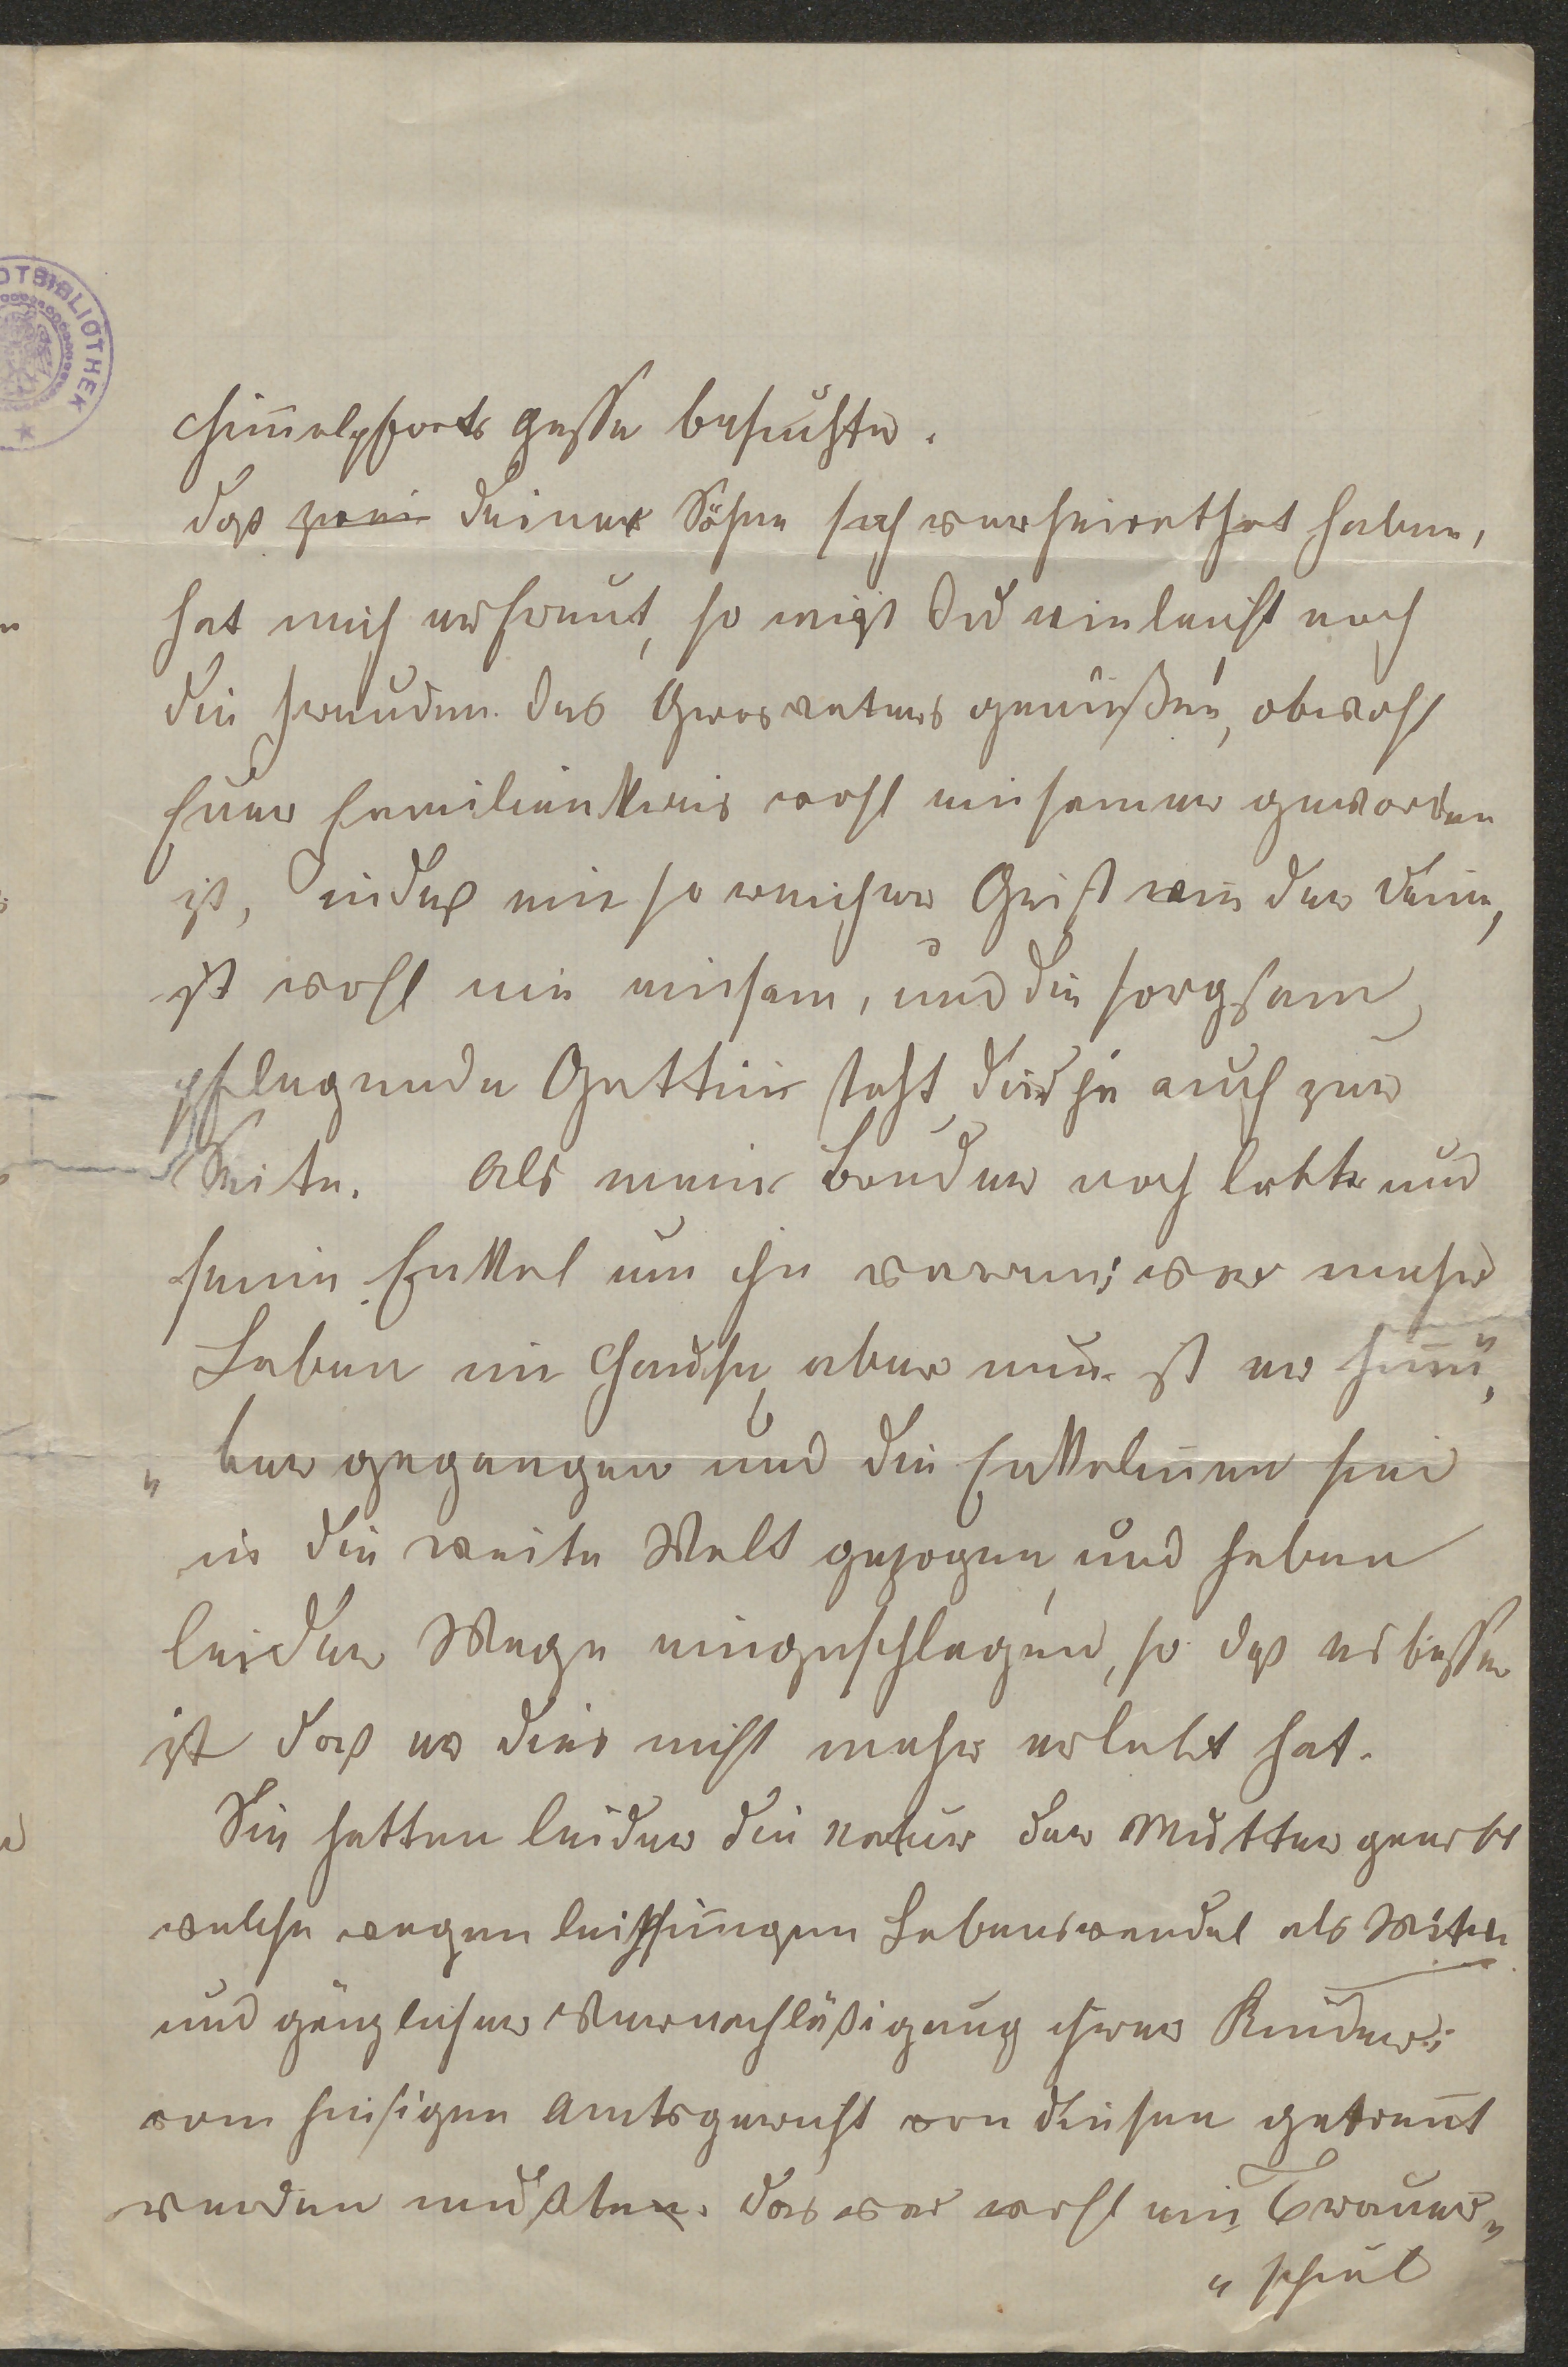 OTSBIBLIOTHEK
Him̅elpforts Gasse besuchte.
daß zwei deiner Söhne sich verheirathet haben,
hat mich erfreut, so wirst Du vieleicht noch
die freuden des Grosvaters genießen, obwohl
Euer Familienkreis wohl einsamer geworden
ist, indeß ein so reicher Geist wie der deine,
ist wohl nie einsam, und die sorgsam
pflegende Gattin steht dir ja auch zur
Seite. Als mein Bruder noch lebte und
seine Enkkel um ihn waren; war mehr
Leben im Hause, aber nun ist er hinü„
„ber gegangen und die Enkkelin̅en sind
in die weite Welt gezogen, und haben
leider Wege eingeschlagen, so daß es besser
ist daß er dies nicht mehr erlebt hat.
Sie hatten leider die Natur der Mutter geerbt
welche wegen leichtsin̅igen Lebenswandel als Witwe
und gänzlicher Vernachläßigung ihrer Kinder;
vom hiesigen Amtsgericht von diesen getren̅t
werden mußte. das war wohl ein Trauer„
„spiel